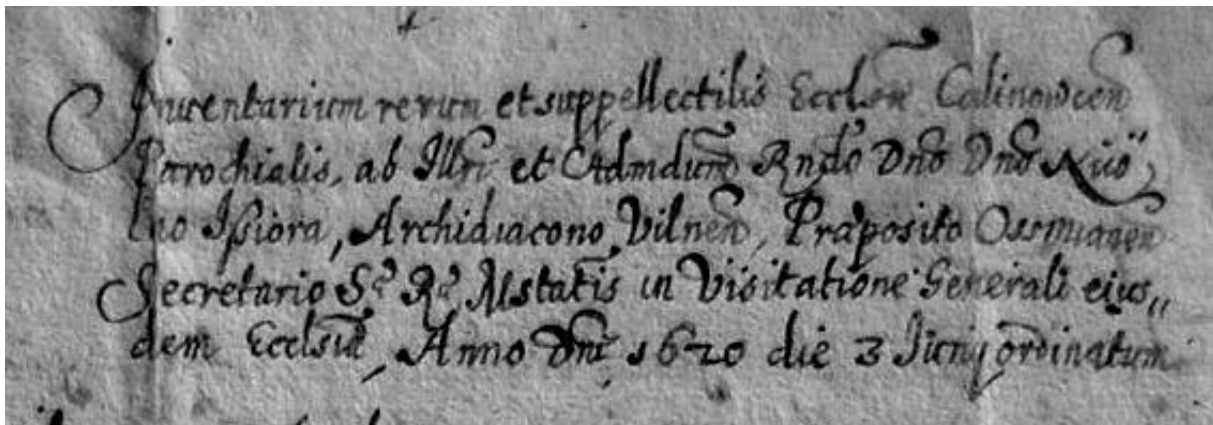 Inventarium rerum et suppellectilis Ecclsæ Calinowcen
Parochialis, ab Illri et Admdum Rndo Dno Dno Nico„
lao Isſiora, Archidiacono Vilnen, Præposito Osmianen
Secretario Sæ Ræ Mstatis in Visitatione Generali eius„
dem Ecclsiæ, Anno Dni 1620 die 3 Iunij ordinatum